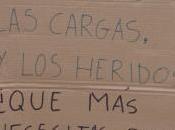 LAS CARGAS,
Y LOS HERIDOS
¿QUE MÁS